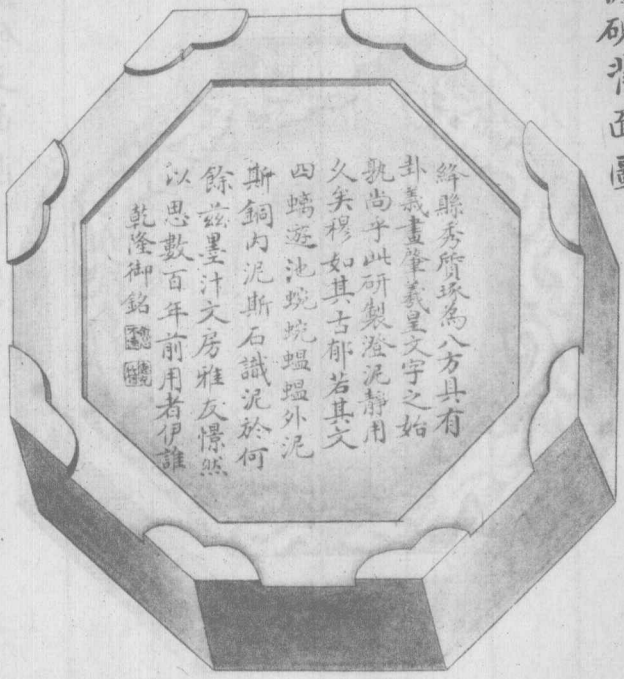 研背面圖
絳縣秀質琢為八方具有
卦義畫肇羲皇文字之始
孰尚乎此研製澄泥靜用
久矣穆如其古郁若其文
四螭遊池蜿蜿蝹蝹外泥
斯銅内泥斯石識泥於何
餘茲墨汁文房雅友憬然
以思數百年前用者伊誰
乾隆御銘